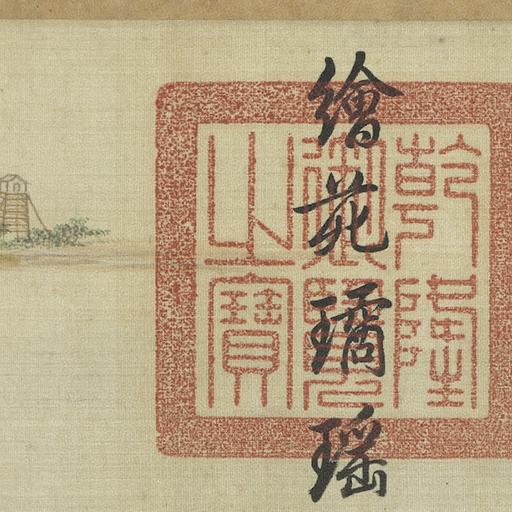 繪苑璚瑶
乾隆
御覽
之寶